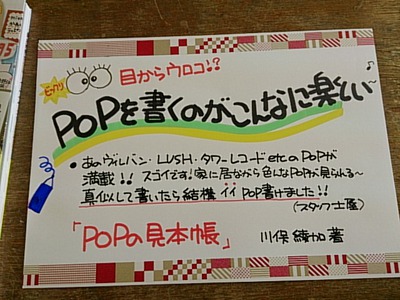 ビックリ
目からウロコ!?
POPを書くのがこんなに楽しい〜♪
• あのヴィレバン・LUSH・タワーレコードetcのPOPが
満載!! スゴイです!家に居ながら色んなPOPが見られる〜
真似して書いたら結構イイPOP書けました!!
(スタッフ土屋)
「POPの見本帳」 川保綾加 著